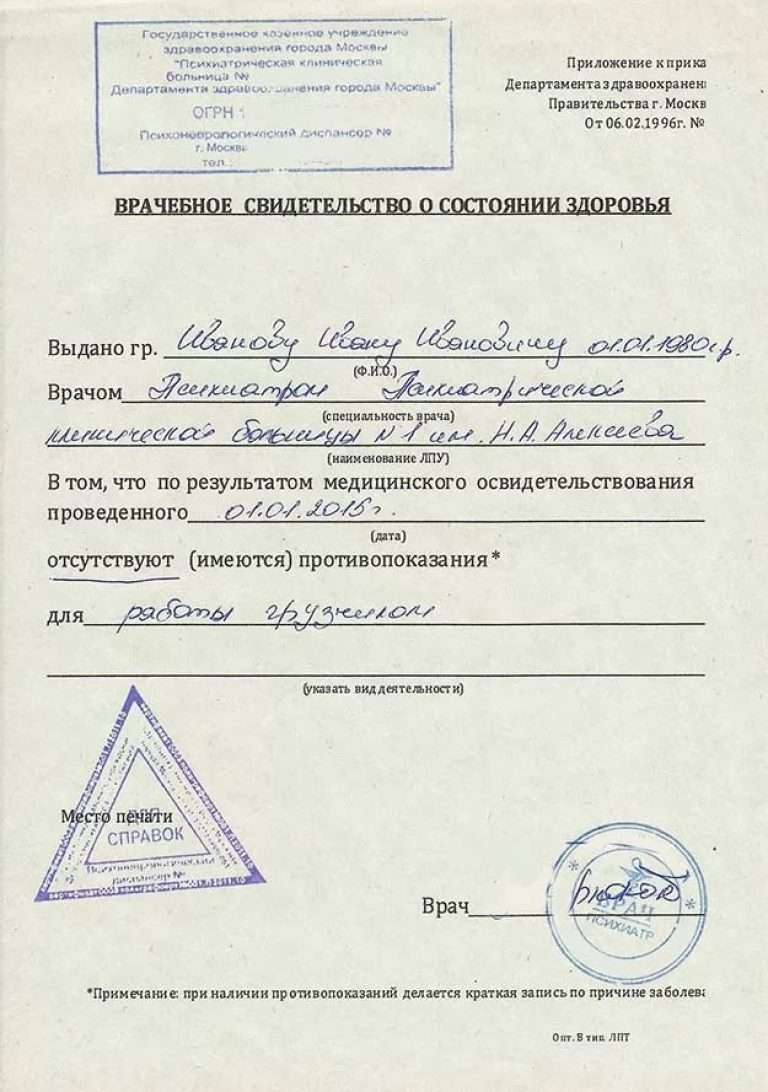 Государственное казенное учреждение
здравоохранения города Москвы
"Психиатрическая клиническая
больница №
Департамента здравоохранения города Москвы"
ОГРН 1
Психоневрологический диспансер №
г. Москва
тел.:
Приложение к прика
Департамента здравоохранен
Правительства г. Москв
От 06.02.1996г. №
ВРАЧЕБНОЕ СВИДЕТЕЛЬСТВО О СОСТОЯНИИ ЗДОРОВЬЯ
Выдано гр. Иванову Ивану Ивановичу 01.01.1980г.р.
(Ф.И.О.)
Врачом Психиатром Психиатрической
(специальность врача)
клинической больницы N 1 им. Н.А. Алексеева
(наименование ЛПУ)
В том, что по результатом медицинского освидетельствования
проведенного 01.01.2015г.
(дата)
отсутствуют (имеются) противопоказания*
для работы грузчиком
(указать вид деятельности)
Место печати
ДЛЯ
СПРАВОК
Психоневрологический
диспансер №
Врач
ВРАЧ
ПСИХИАТР
*Примечание: при наличии противопоказаний делается краткая запись по причине заболева
Опт. В тип. ЛПТ